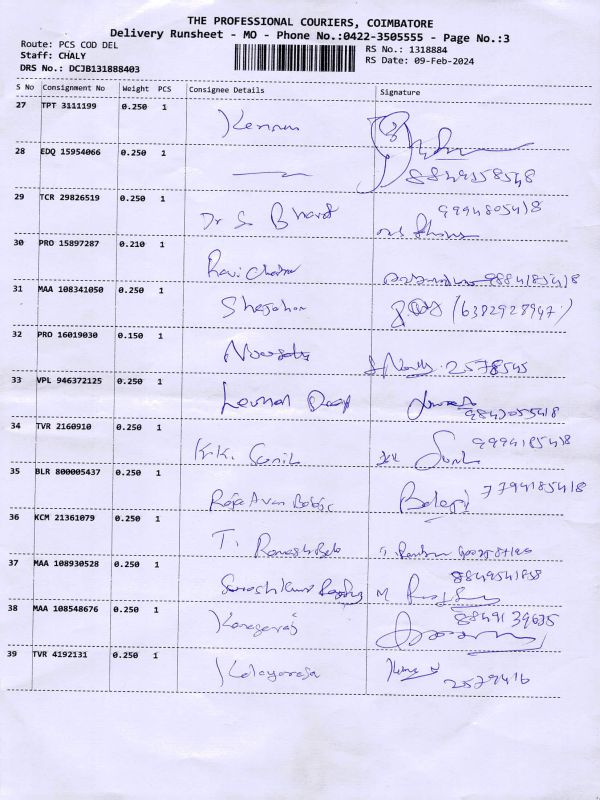 THE PROFESSIONAL COURIERS, COIMBATORE
Delivery Runsheet - MO - Phone No.:0422-3505555 - Page No.:3
Route: PCS COD DEL
Staff: CHALY
DRS No.: DCJB131888403
RS No.: 1318884
RS Date: 09-Feb-2024
S No Consignment No Weight PCS Consignee Details Signature
27 TPT 3111199 0.250 1 Kannan
28 EDQ 15954066 0.250 1
29 TCR 29826519 0.250 1 Dr S Bharat 9994805418
30 PRO 15897287 0.210 1 Ravi Chandran 9884185418
31 MAA 108341050 0.250 1 Shajahan (6382928947)
32 PRO 16019030 0.150 1 2578545
33 VPL 946372125 0.250 1
34 TVR 2160910 0.250 1 K.K. Sunil Sunil 9994185418
35 BLR 800005437 0.250 1 Balaji 7794185418
36 KCM 21361079 0.250 1 T. Ramesh Babu
37 MAA 108930528 0.250 1 M
38 MAA 108548676 0.250 1 Kanagaraj 8849139635
39 TVR 4192131 0.250 1 Kalayaraja 2579416